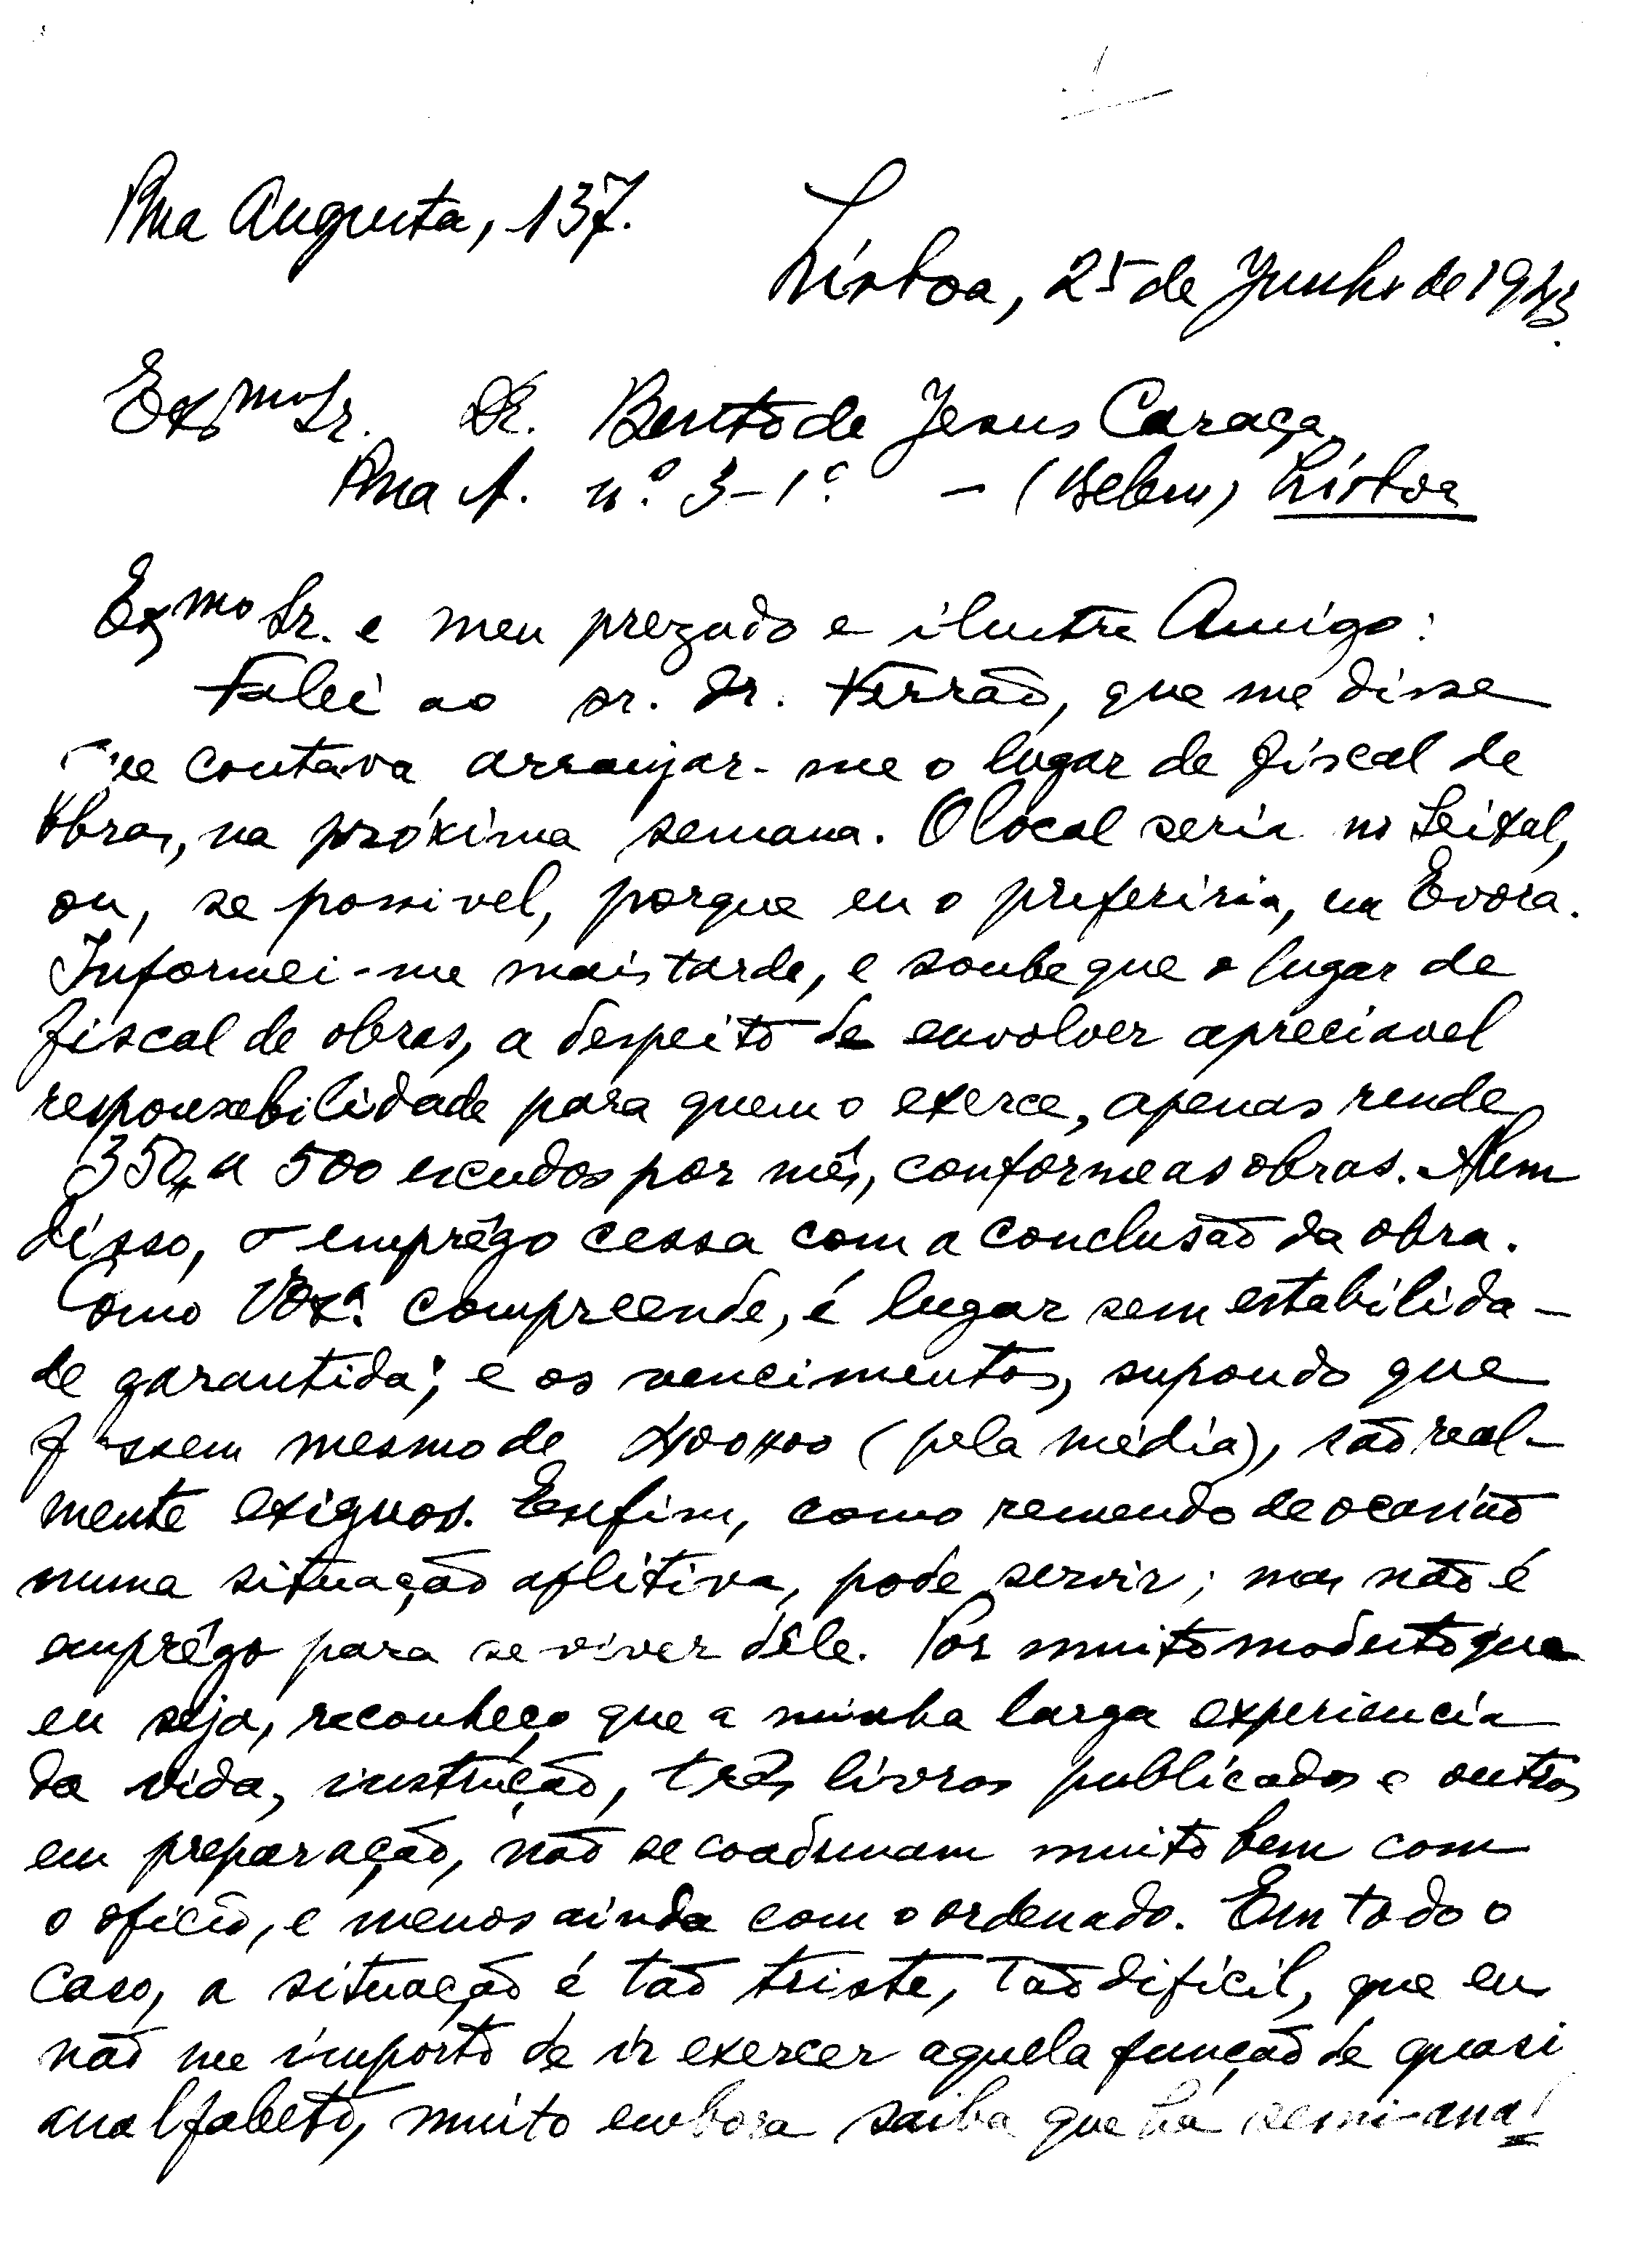 Rua Augusta, 137.
Lisboa, 25 de Junho de 1943.
Exmo Sr. Dr. Bento de Jesus Caraça
Rua A. nº 3-1º - (Belem) Lisboa
Exmo Sr. e meu prezado e ilustre Amigo:
Falei ao sr. dr. Ferrão, que me disse
que contava arranjar-me o lugar de fiscal de
obras, na próxima semana. O local seria no Seixal,
ou, se possivel, porque eu o preferiria, em Evora.
Informei-me mais tarde, e soube que o lugar de
fiscal de obras, a despeito de envolver apreciavel
responsabilidade para quem o exerce, apenas rende
350$ a 500 escudos por mês, conforme as obras. Alem
disso, o emprêgo cessa com a conclusão da obra.
Como V.Exª. compreende, é lugar sem estabilida-
de garantida; e os vencimentos, supondo que
fossem mesmo de 400$00 (pela média), são real-
mente exiguos. Enfim, como remendo de ocasião
numa situação aflitiva, pode servir; mas não é
emprêgo para se viver dêle. Por muito modesto que
eu seja, reconheço que a minha larga experiencia
da vida, instrução, três livros publicados e outros
em preparação, não se coadunam muito bem com
o oficio, e menos ainda com o ordenado. Em todo o
caso, a situação é tão triste, tão dificil, que eu
não me importo de ir exercer aquela função de quasi
analfabeto, muito embora saiba que há semi-anal